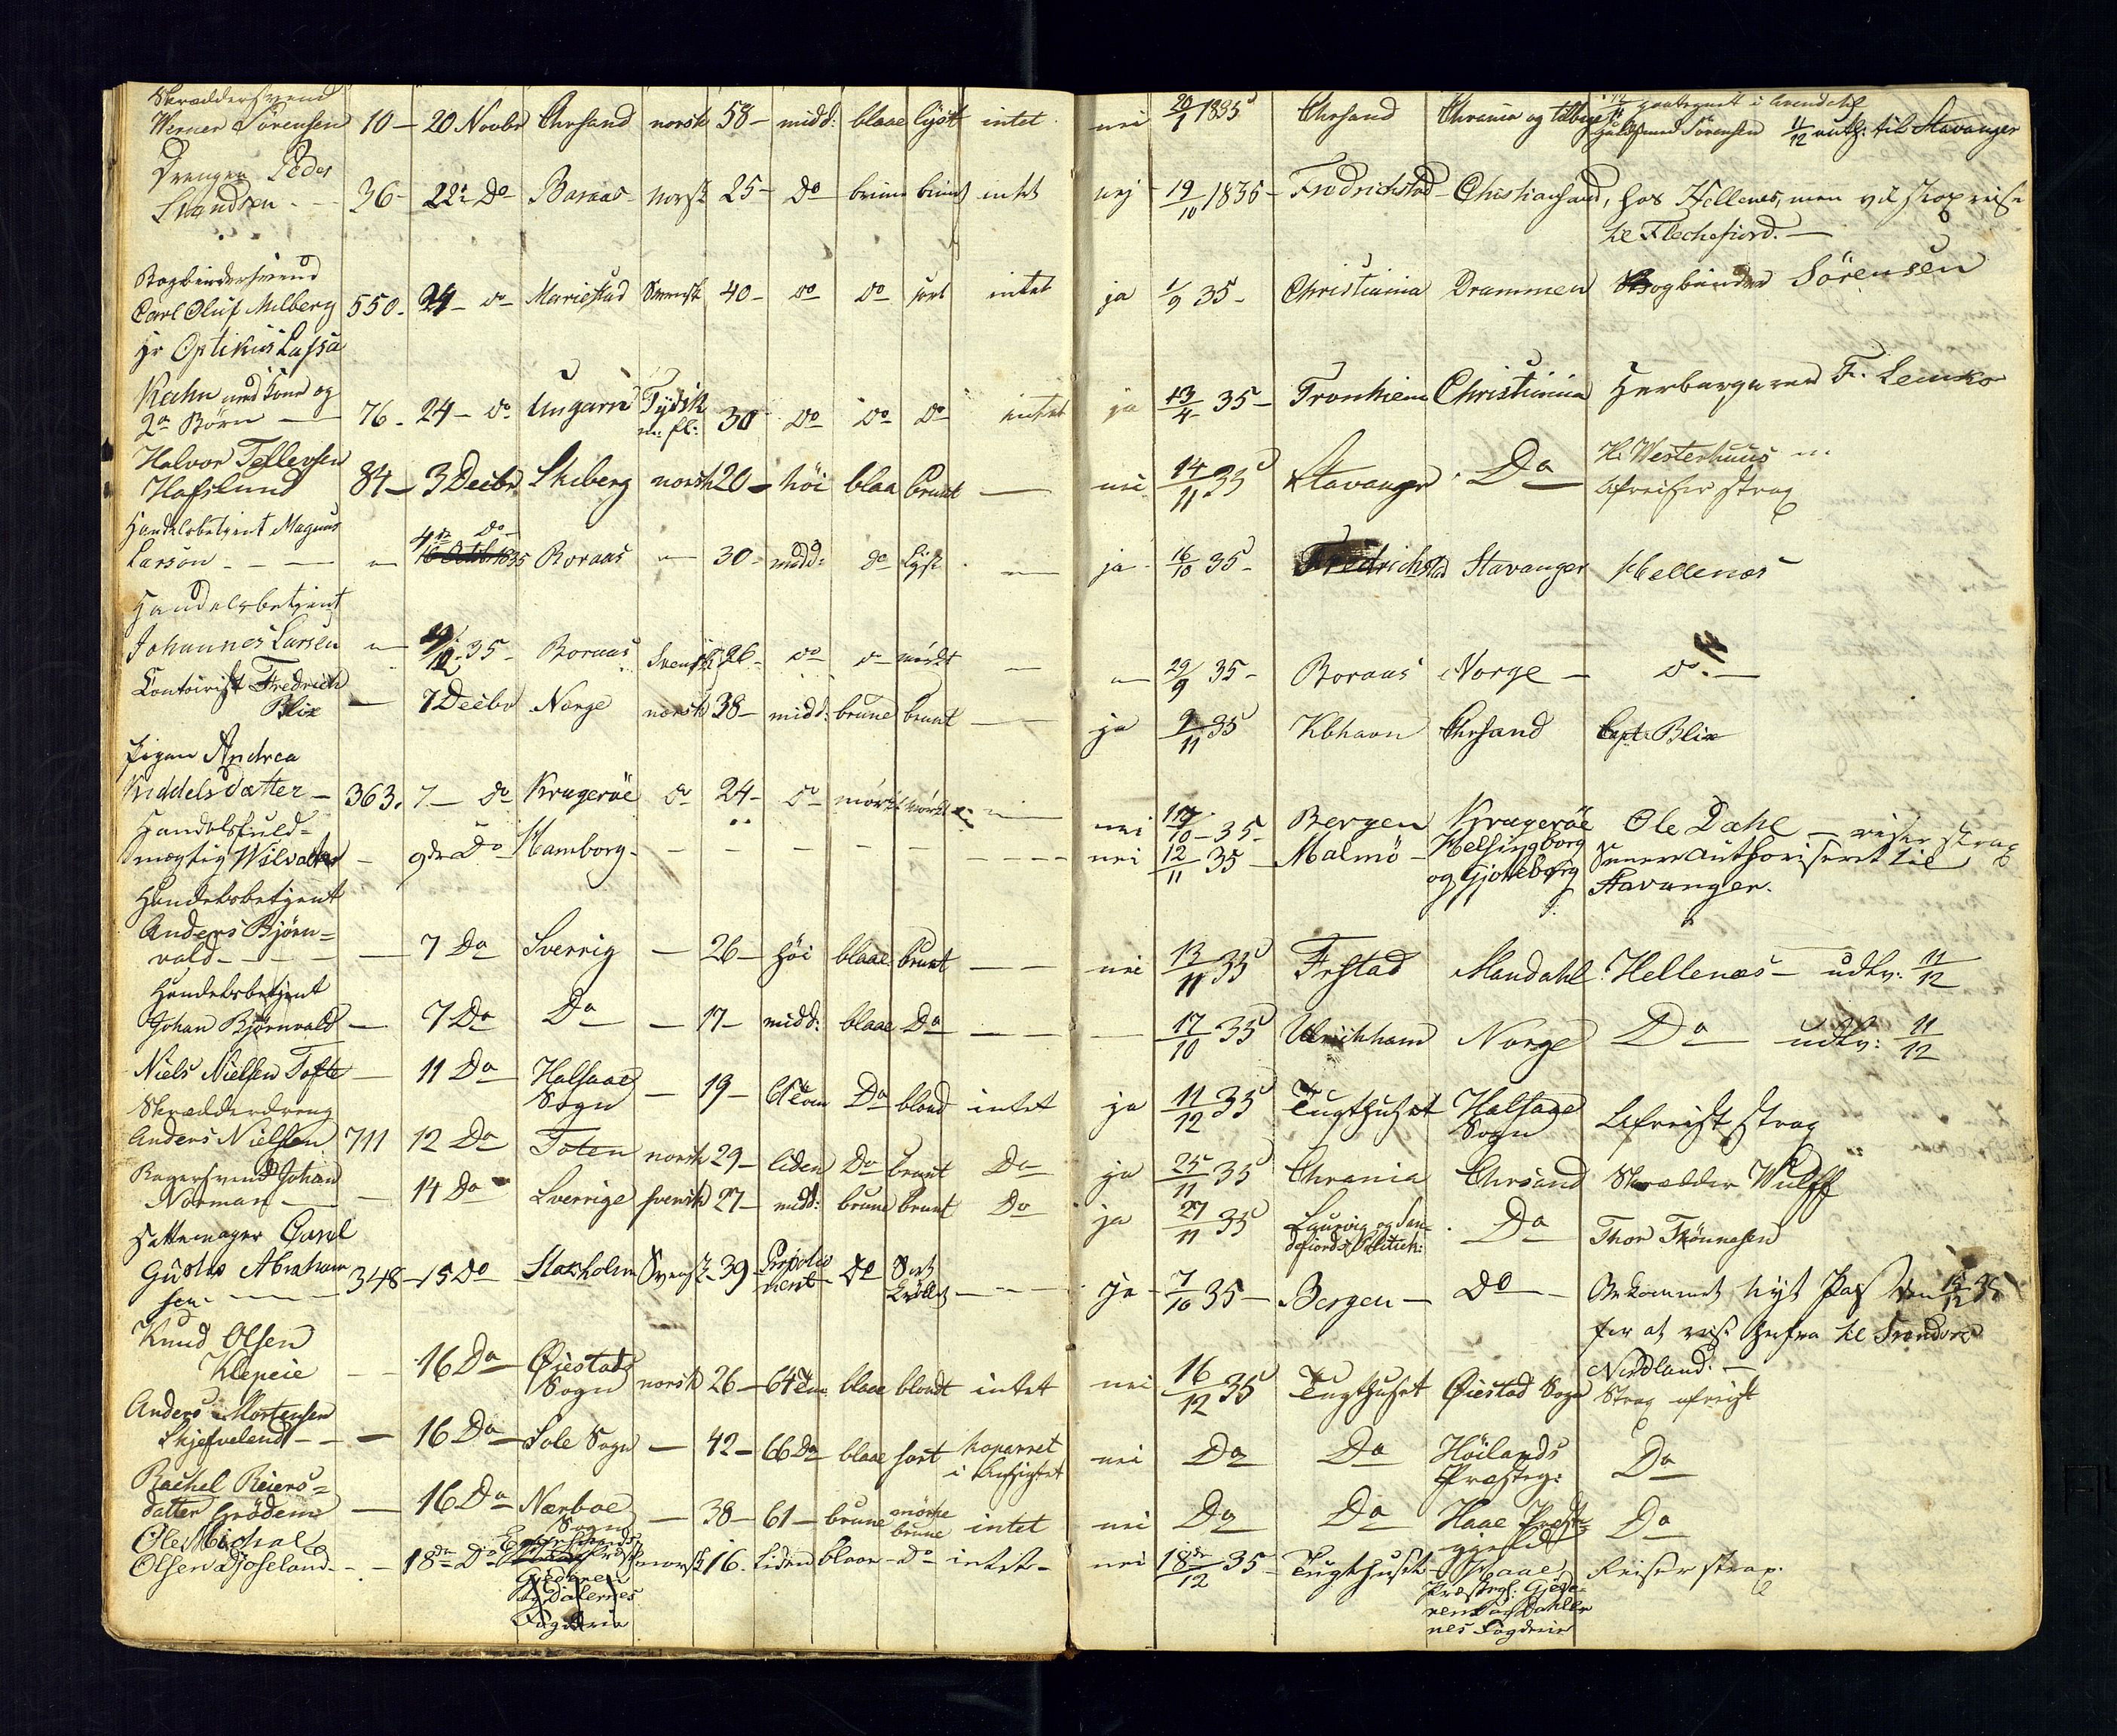 Skræddersvend
Werner Sörensen 10 - 20 Novbr Chrsand norsk 58 - midd: blaae lyst intet nei 20/1 1835 Chrsand Chrania og tilbage
Sörensen 11/12 auth: til Stavanger
Drengen Peder
Svendsen 36 - 22 Do Boraas norsk 25 - Do brune intet nej 19/10 1835 - Fredrichstad Christiansand, hos Hellenes, men vil strax reise
til Flechefiord. -
Bogbindersvend
Carl Oluf Milberg 550 - 24 - do Mariestad Svensk 40 - do do sort intet ja 1/9 35 - Christiania Drammen Bogbinder Sörensen
Hr Optikus Lassa
Kuhn med Kone og
2 Börn - 76 - 24 - do Ungarn Tydsk 30 Do Do Do intet ja 13/4 35 - Tronhiem Christiania Herbergerer F. Lemko
Halvor Tellevsen
Hafslund 84 - 3 Decbr Skiberg norsk 20 - höi blaa brunt - nei 14/11 35 Stavanger Do H. Westerhuus
Afreiser strax
Handelsbetjent Magnus
Larson - 4de do
16 Octb 1835 Boraas - 30 - midd: do lyst - ja 16/10 35 - Fredrichstad Stavanger Hellenæs
Handelsbetjent
Johannes Larsen - 12 35 - Boraas Svensk 26 - do do mörkt - 29/9 35 - Boraas Norge - do -
Contoirist Fredrich
Blix - 7 Decbr Norge norsk 38 - midd: brune brunt - ja 9/11 35 Kbhavn Chrsand Capt. Blix
Pigen Andrea
Kiddelsdatter - 363. 7 - do Kragerøe do 24 - do mörke mörkt - nei 10 - 35 - Bergen Kragerøe Ole Dahl - reiser strax
Handelsfuld-
mægtig - 9de Do Hamborg - nei 12/11 35 - Malmö - Helsingborg
og Gjøtteborg Senere authoriseret til
Stavanger.
Handelsbetjent
Anders Bjørn=
vald - 7 Do Sverrig - 26 - höi blaae brunt - nei 13/11 35 Frstad Mandahl Hellenæs - udlv: 11/12
Handelsbetjent
Johan Bjørnvald - 7 Do Do - 17 - midd: blaae Do - 17/10 35 Ulrichham Norge Do udlv: 11/12
Niels Nielsen Tofte - 11 Do Halsaae
Sogn - 19 - Do blond intet ja 11/12 35 Tugthuset Halsaae
Sogn Afreist strax
Skrædderdreng
Anders Nielsen 711 12 Do Toten norsk 29 - liden Do brunt Do ja 25/11 35 Chrania Chrsand Skrædder Wulff
Bagersvend Johan
Norman - 14 Do Sverrige svensk 27 - midd: brune brunt Do ja 27/11 35 Laurvig og San-
defiords Politik: Do Thor Thönnesen
Hattemager Carl
Gustav Abraham
sen - 348 - 15 Do Stokholm Svensk - 39 - Do Sort - ja - 7/10 35 - Bergen - Do - Bekommet nyt Pas den 15/12 35
for at reise herfra til
Nordland. -
Knud Olsen
Klepeie - 16 Do Øiestad
Sogn norsk 26 - 64 Tom blaae blondt intet nei 16/12 35 Tugthuset Øiestad Sogn Strax afreist
Anders Mortensen
Skjefveland - 16 Do - Sole Sogn - 42 - 66 Do blaae sort koparret
i Ansigtet nei Do Do Höilands
Præsteg: Do
Rachel Reiers=
datter Grödem - 16 Do Nærboe
Sogn - 38 - 61 - brune mörke
brune intet nei Do Do Haae Præste-
gjeld Do
Ole Michal
Olsen Djoseland - 18de Do norsk 16. liden blaae - Do intet - nei 18de/12 35 - Tugthuset - Haae Reiser strax.
Præstegj. Gjede-
ren og Dahler
nes Fogderie
Fogderie